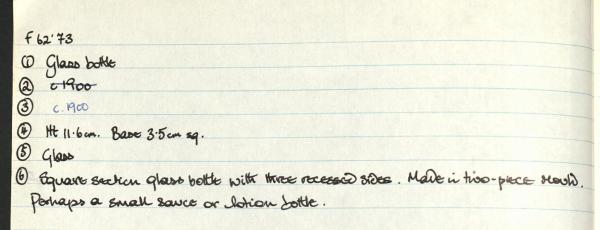 F62'73
① Glass bottle
② c1900
③ c.1900
④ Ht 11.6cm. Base 3.5cm sq.
⑤ Glass
⑥ Square section glass bottle with three recessed sides. Made in two-piece mould.
Perhaps a small sauce or lotion bottle.